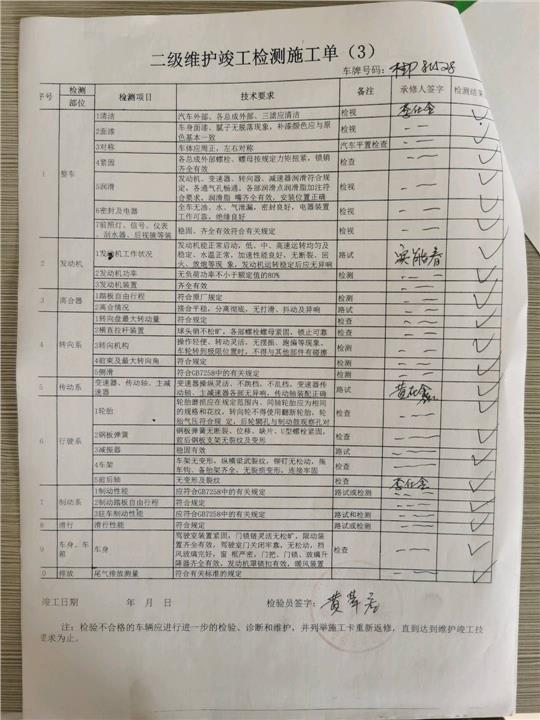 二级维护竣工检测施工单（3）
车牌号码：
序号 检测部位 检测项目 技术要求 备注 承修人签字 检测结果
1 整车
1清洁 汽车外部、各总成外部、三滤应清洁 检视
2面漆 车身面漆、腻子无脱落现象，补漆颜色应与原色基本一致 检视
3对称 车体应周正，左右对称 汽车平置检查
4紧固 各总成外部螺栓、螺母按规定力矩扭紧，锁销齐全有效 检查
5润滑 发动机、变速器、转向器、减速器润滑符合规定，各通气孔畅通，各部润滑点润滑脂加注符合要求，润滑脂 嘴齐全有效，安装位置正确 检视
6密封及电器 全车无油、水、气泄漏，密封良好，电器装置工作可靠，绝缘良好 检视
7前照灯、信号、仪表、刮水器、后视镜等装 稳固、齐全有效符合有关规定 检视
2 发动机
1发动机工作状况 发动机能正常启动，低、中、高速运转均匀及稳定、水温正常，加速性能良好，无断裂、回火、放炮等现象，发动机运转稳定后应无异响 路试
2发动机功率 无负荷功率不小于额定值的80% 检测
3发动机装置 齐全有效
3 离合器
1踏板自由行程 符合原厂规定 检测
2离合情况 接合平稳，分离彻底，无打滑、抖动及异响 路试
4 转向系
1转向盘最大转动量 符合规定 检测
2横直拉杆装置 球头销不松旷，各部螺栓螺母紧固，锁止可靠 检查
3转向机构 操作轻便、转动灵活，无摆振、跑偏等现象，车轮转到极限位置时，不得与其他部件有碰擦 检测
4前束及最大转向角 符合规定 检测
5侧滑 符合GB7258中的有关规定 检测
5 传动系 变速器、传动轴、主减速器 变速器操纵灵活、不跳档、不乱档，变速器传动轴、主减速器各部无异响，传动轴装配正确 路试
6 行驶系
1轮胎 轮胎磨损应在规定范围内，同轴轮胎应为相同的规格和花纹，转向轮不得使用翻新轮胎，轮胎气压符合规 定，后轮辋孔与制动鼓观察孔对 检查
2钢板弹簧 钢板弹簧无断裂、位移、缺片、U型螺栓紧固，前后钢板支架无裂纹及变形 检查
3减振器 稳固有效 路试
4车架 车架无变形，纵横梁武裂纹，铆钉无松动，拖车钩、备胎架齐全、无裂损变形，连接牢固 检查
5前后轴 无变形及裂纹 检查
7 制动系
1制动性能 应符合GB7258中的有关规定 路试或检测
2制动踏板自由行程 符合规定
3驻车制动性能 应符合GB7258中的有关规定 路试和检测
8 滑行 滑行性能 符合规定 路试或检测
9 车身、车箱 车身 驾驶室装置紧固，门锁链灵活无松旷，限动装置齐全有效，驾驶室门关闭牢靠，无松动，挡风玻璃完好，窗 框严密，门把、门锁、玻璃升降器齐全有效，发动机罩锁扣有效，暖风装置 检查
0 排放 尾气排放测量 符合有关标准的规定
竣工日期 年 月 日 检验员签字：
注：检验不合格的车辆应进行进一步的检验、诊断和维护，并列举施工卡重新返修，直到达到维护竣工技
要求为止。